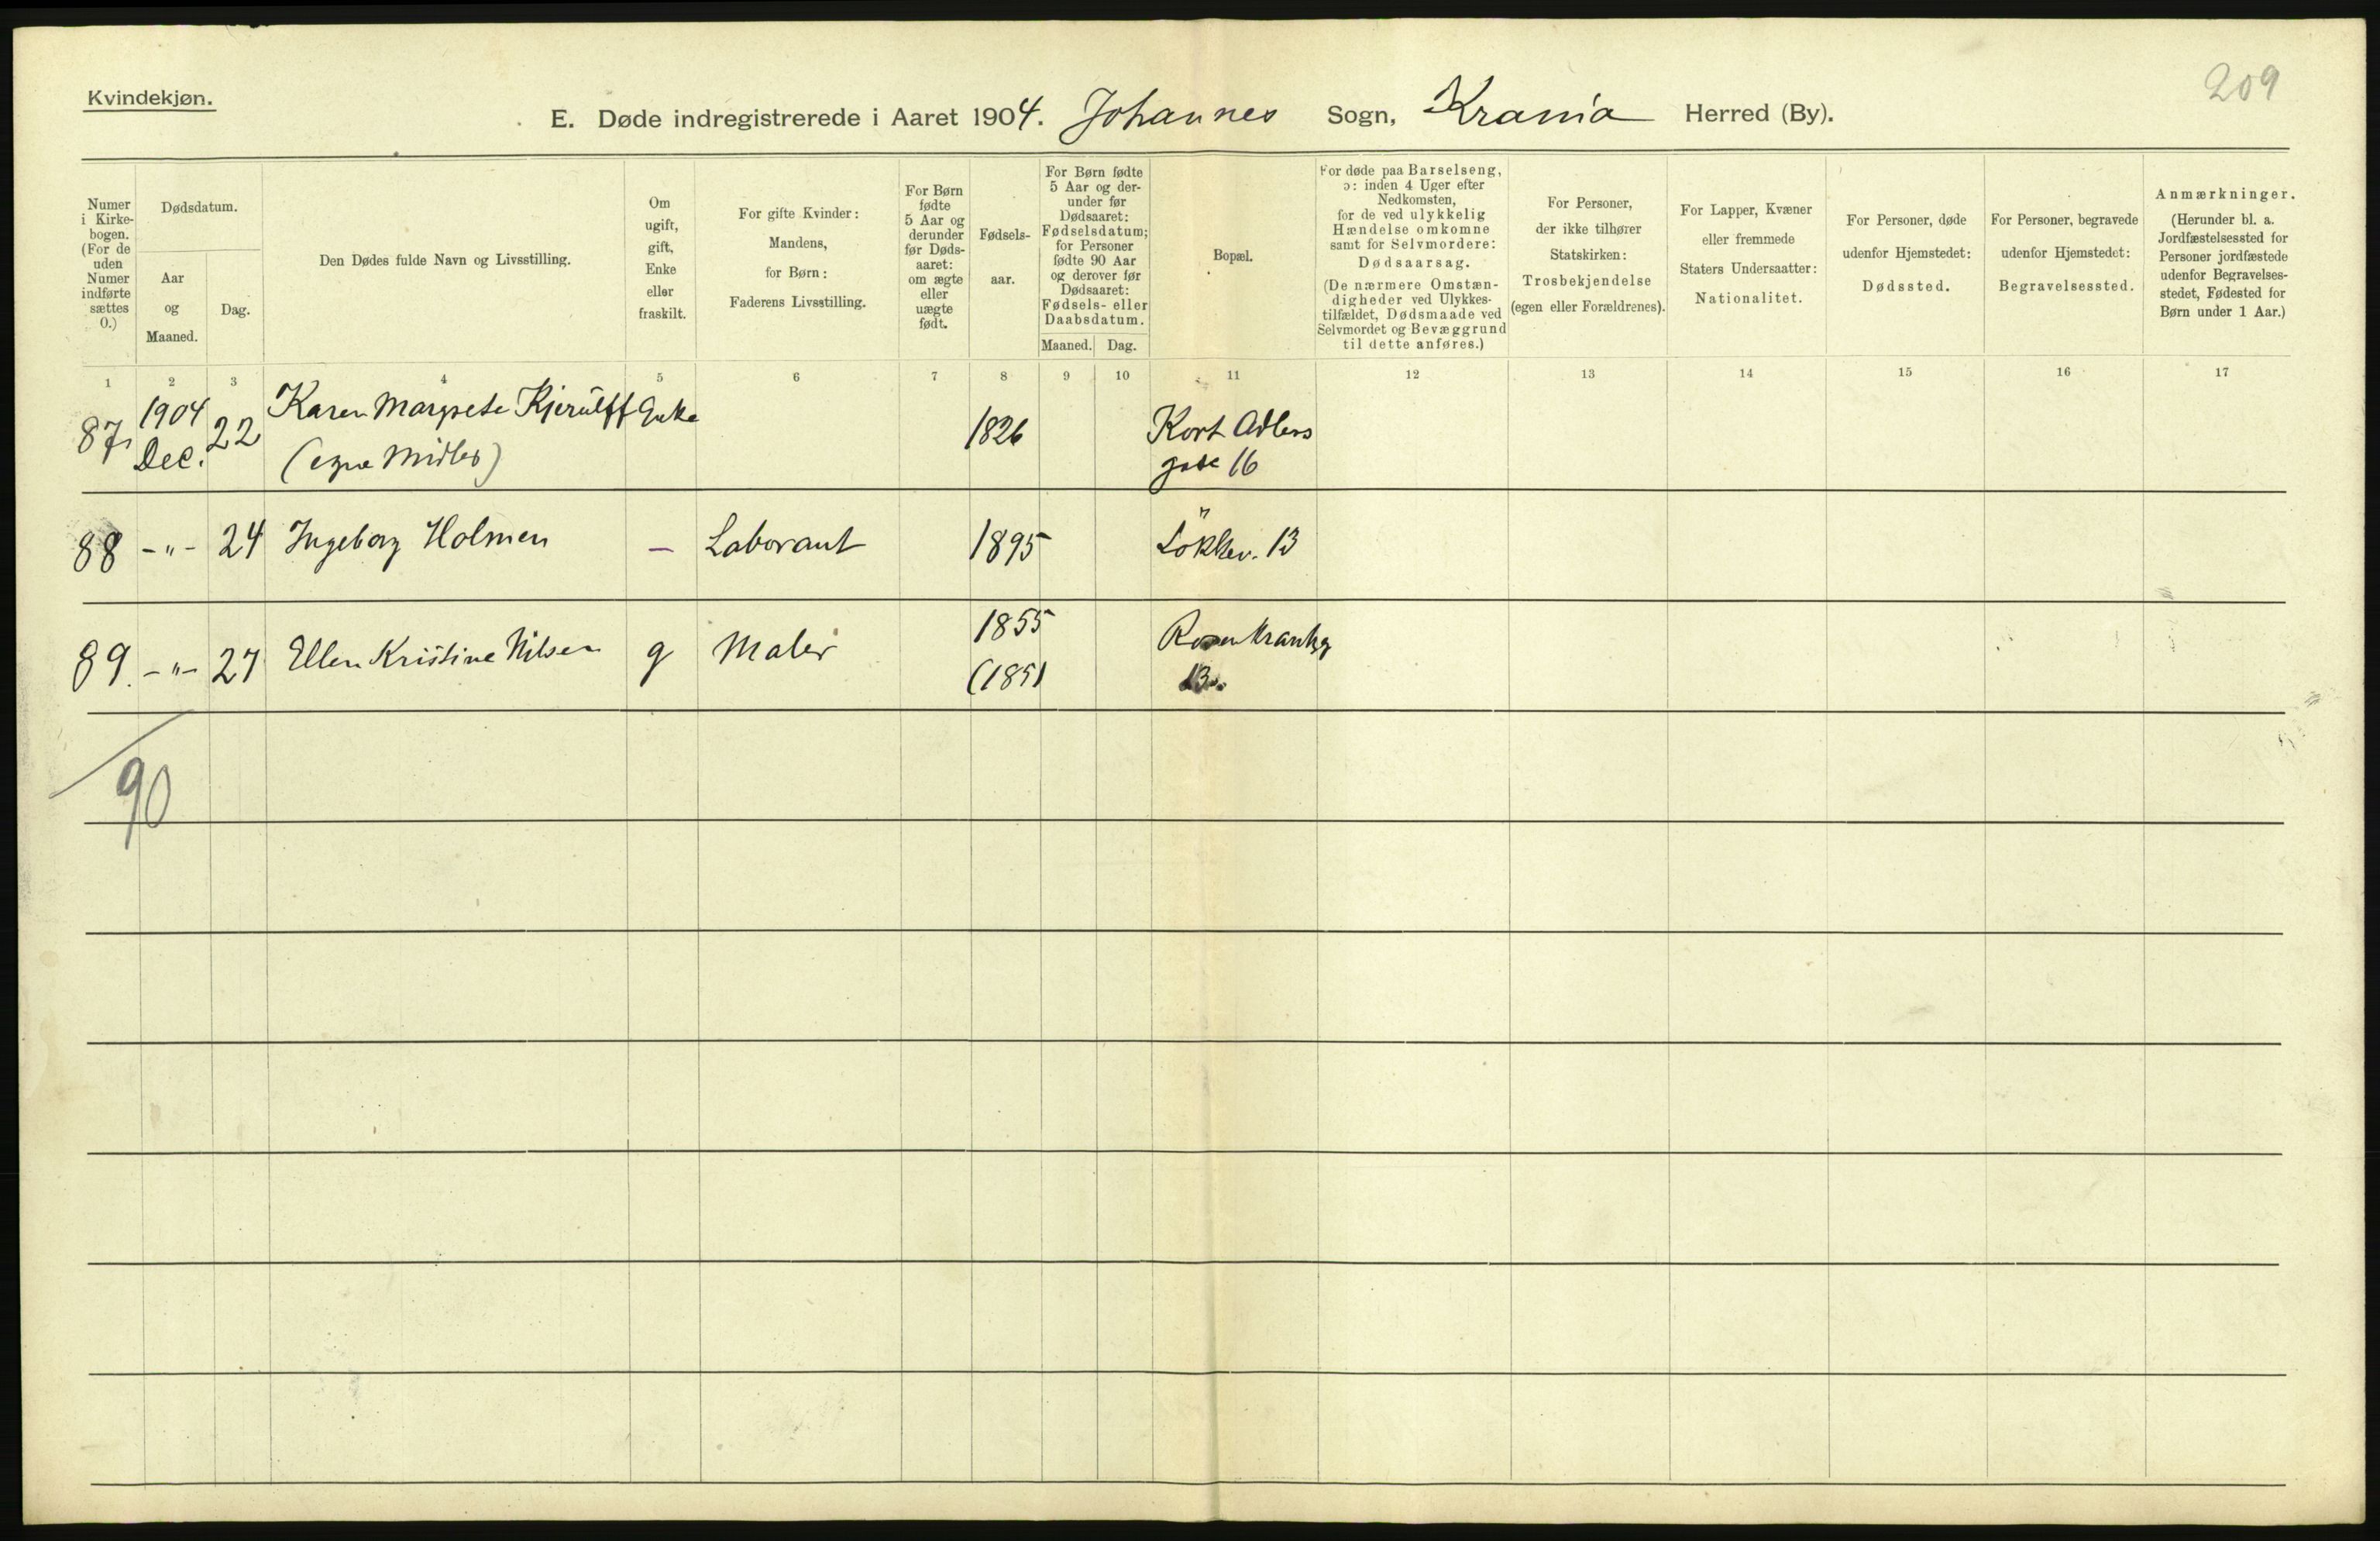 Kvindekjøn.
209
E. Døde indregistrerede i Aaret 1904. Johannes Sogn, Krania Herred (By).
Numer
i Kirke-
bogen.
(For de
uden
Numer
indførte
sættes
0.)
Dødsdatum.
Aar
og
Maaned.
Dag.
Den Dødes fulde Navn og Livsstilling.
Om
ugift,
gift,
Enke
eller
fraskilt.
For gifte Kvinder:
Mandens,
for Børn:
Faderens Livsstilling.
For Børn
fødte
5 Aar og
derunder
før Døds-
aaret:
om ægte
eller
uægte
født.
Fødsels-
aar.
For Børn fødte
5 Aar og der-
under før
Dødsaaret:
Fødselsdatum;
for Personer
fødte 90 Aar
og derover før
Dødsaaret:
Fødsels- eller
Daabsdatum.
Maaned. Dag.
Bopæl.
For døde paa Barselseng,
ɔ: inden 4 Uger efter
Nedkomsten,
for de ved ulykkelig
Hændelse omkomne
samt for Selvmordere:
Dødsaarsag.
(De nærmere Omstæn-
digheder ved Ulykkes-
tilfældet, Dødsmaade ved
Selvmordet og Bevæggrund
til dette anføres.)
For Personer,
der ikke tilhører
Statskirken:
Trosbekjendelse
(egen eller Forældrenes).
For Lapper, Kvæner
eller fremmede
Staters Undersaatter:
Nationalitet.
For Personer, døde
udenfor Hjemstedet:
Dødssted.
For Personer, begravede
udenfor Hjemstedet:
Begravelsessted.
Anmærkninger.
(Herunder bl. a.
Jordfæstelsessted for
Personer jordfæstede
udenfor Begravelses-
stedet, Fødested for
Børn under 1 Aar.)
1 2 3 4 5 6 7 8 9 10 11 12 13 14 15 16 17
87 1904 Dec. 22 Karen Margrete Kjerulff Enke 1826 Kort Adlers
(egne Midler) gade 16
88 -"- 24 Ingeborg Holmen — Laborant 1895 Lökkev. 13
89. -"- 27 Ellen Kristine Nilsen g Maler 1855 Rosenkrantzg
(1851 13
90